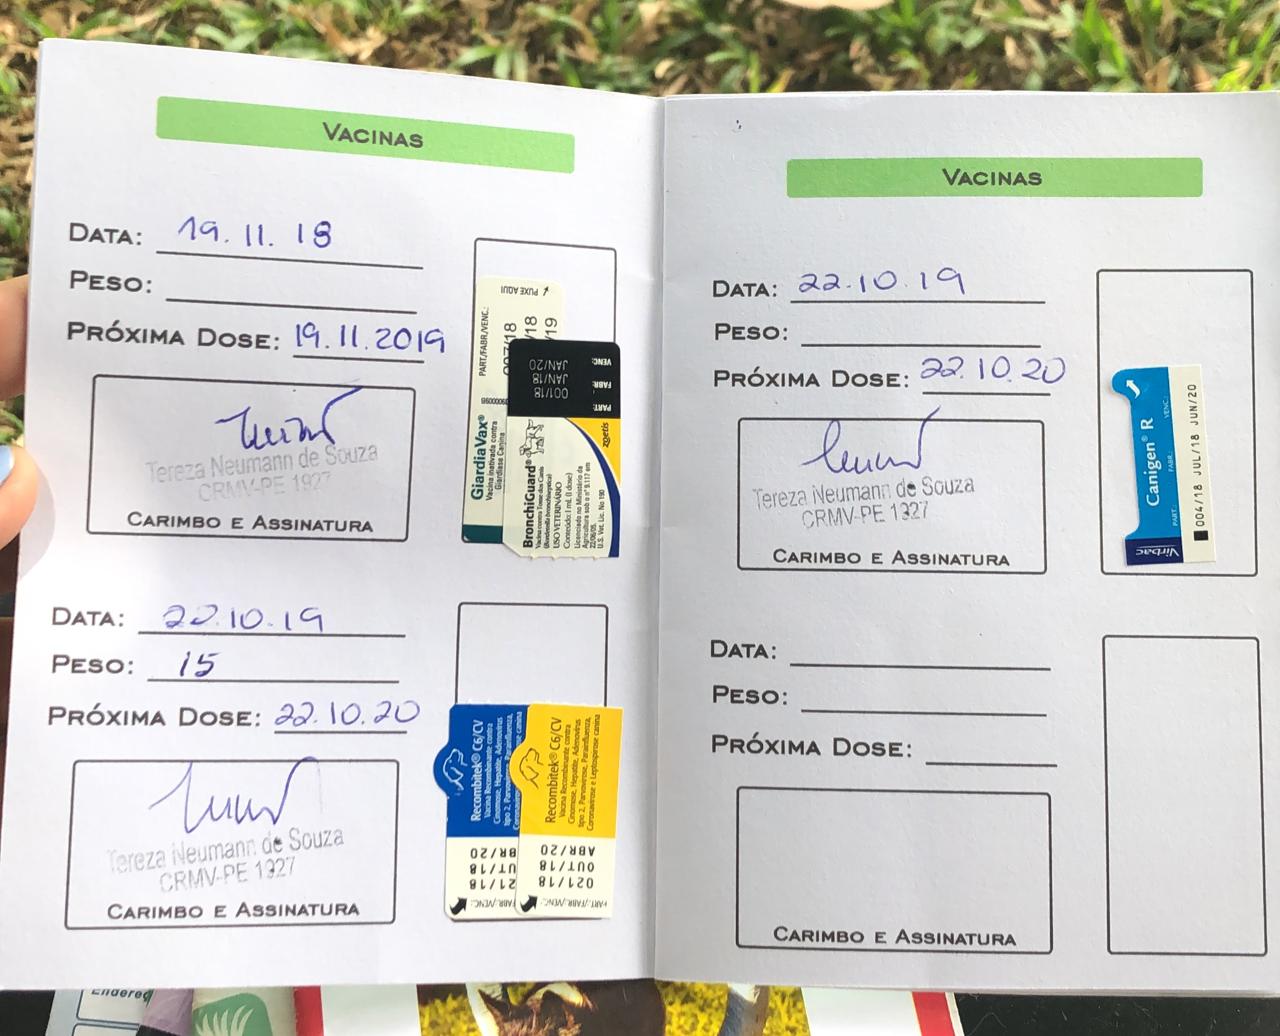 VACINAS
DATA: 19.11.18
PESO:
PRÓXIMA DOSE: 19.11.2019
Tereza Neumann de Souza
CRMV-PE 1327
CARIMBO E ASSINATURA
PUXE AQUI
PART./FABR/VENC.:
007/18
/18
/19
GiardiaVax®
Vacina inativada contra
Giardíase Canina
PART: 001/18
FABR: JAN/18
VENC: JAN/20
zoetis
BronchiGuard®
Vacina contra Tosse dos Canis
(Bordetella bronchiseptica)
USO VETERINÁRIO
Conteúdo: 1 mL (1 dose)
Licenciado no Ministério da
Agricultura sob o nº 9.117 em
22/06/05.
U.S. Vet. Lic. No 190
DATA: 22.10.19
PESO: 15
PRÓXIMA DOSE: 22.10.20
Tereza Neumann de Souza
CRMV-PE 1327
CARIMBO E ASSINATURA
Recombitek® C6/CV
Vacina Recombinante contra
Cinomose, Hepatite, Adenovírus
tipo 2, Parvovirose, Parainfluenza,
Coronavirose canina
21/18
UT/18
BR/20
Recombitek® C6/CV
Vacina Recombinante contra
Cinomose, Hepatite, Adenovírus
tipo 2, Parvovirose, Parainfluenza,
Coronavirose e Leptospirose canina
PART./FABR./VENC.:
021/18
OUT/18
ABR/20
VACINAS
DATA: 22.10.19
PESO:
PRÓXIMA DOSE: 22.10.20
Tereza Neumann de Souza
CRMV-PE 1327
CARIMBO E ASSINATURA
Canigen® R
PART. FABR. VENC.
004/18 JUL/18 JUN/20
Virbac
DATA:
PESO:
PRÓXIMA DOSE:
CARIMBO E ASSINATURA
Endereç